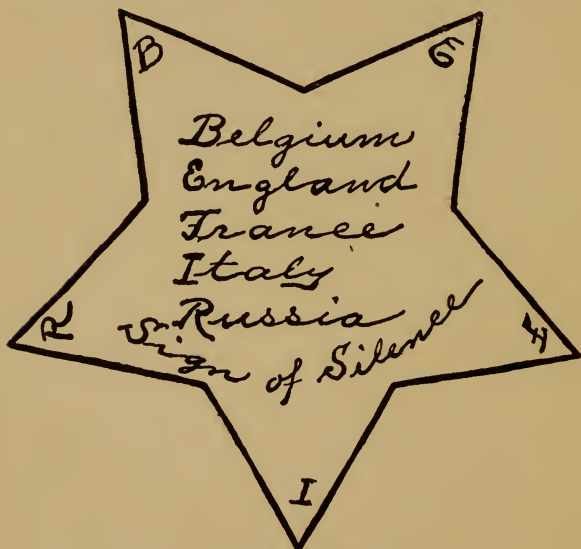 B
E
Belgium
England
France
Italy
Russia
R
F
Sign of Silence
I